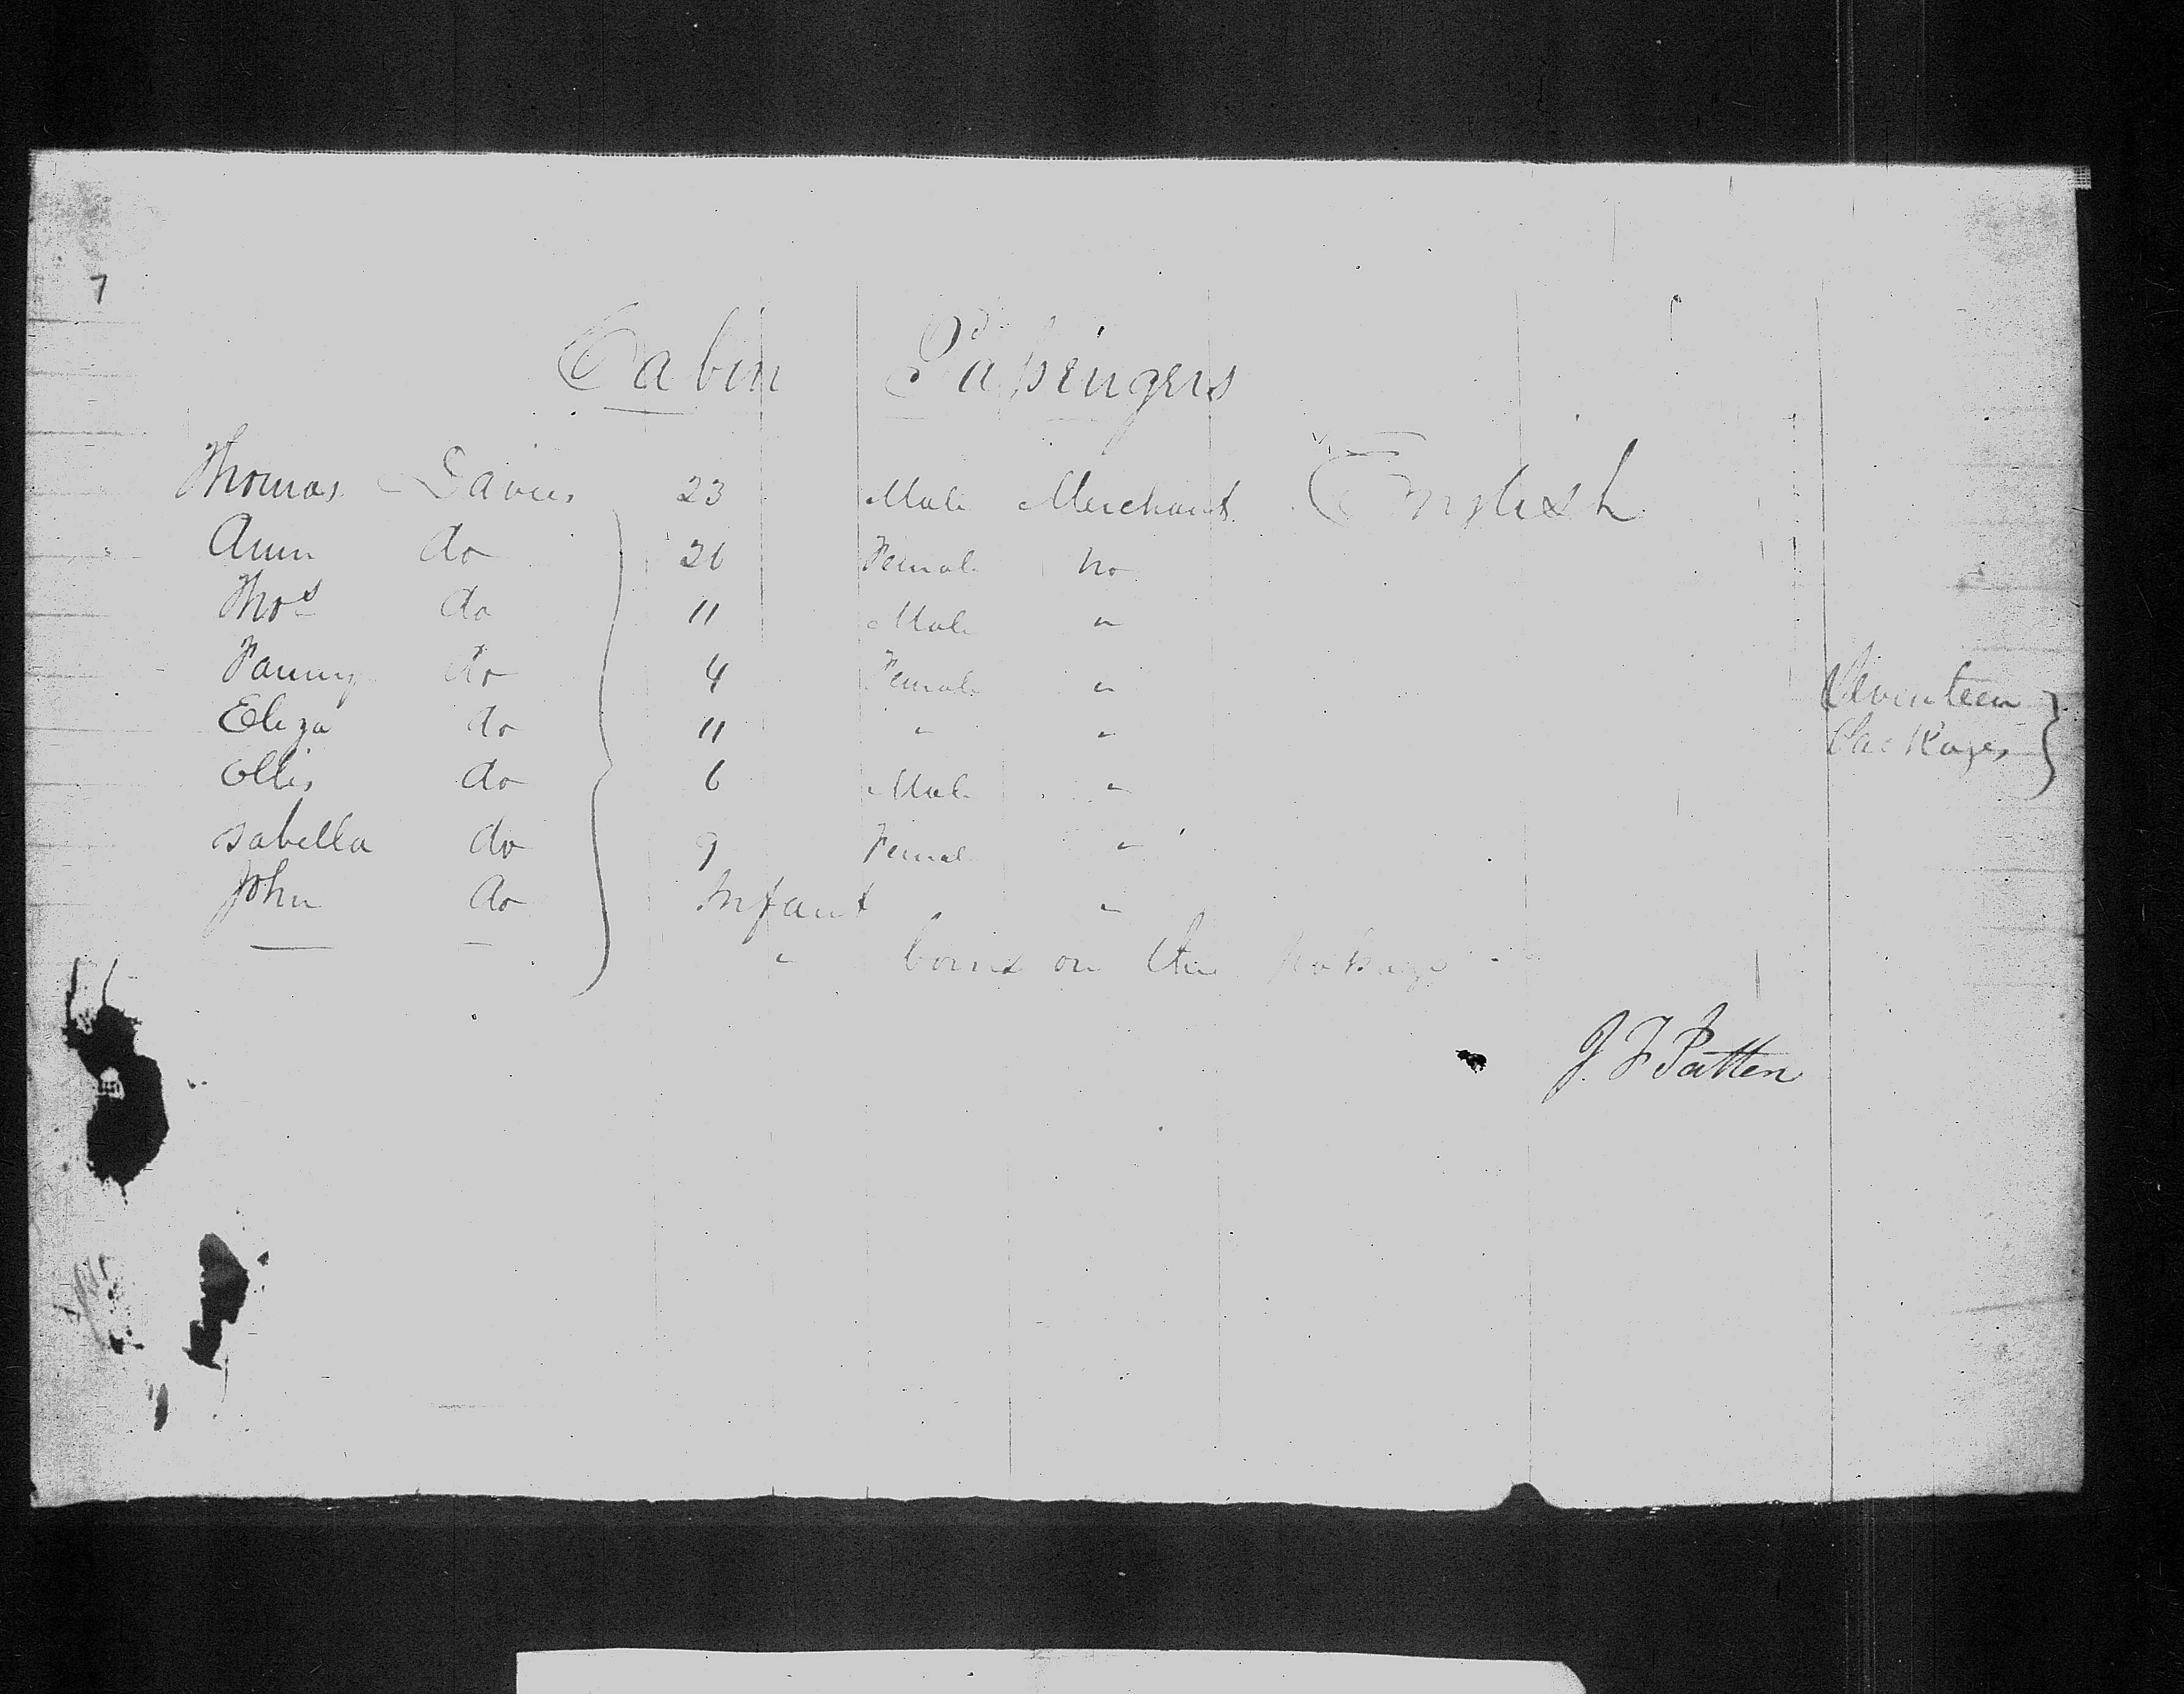 7
Cabin Passengers
Thomas Davies 23 Male Merchant English
Ann do 26 Female no
Thos do 11 Male "
Fanny do 4 Female "
Eliza do 11 " "
Ollis do 6 Male "
Isabella do 9 Femal "
John do Infant "
" born on the passage
Seventeen
Packages
J. F Patten